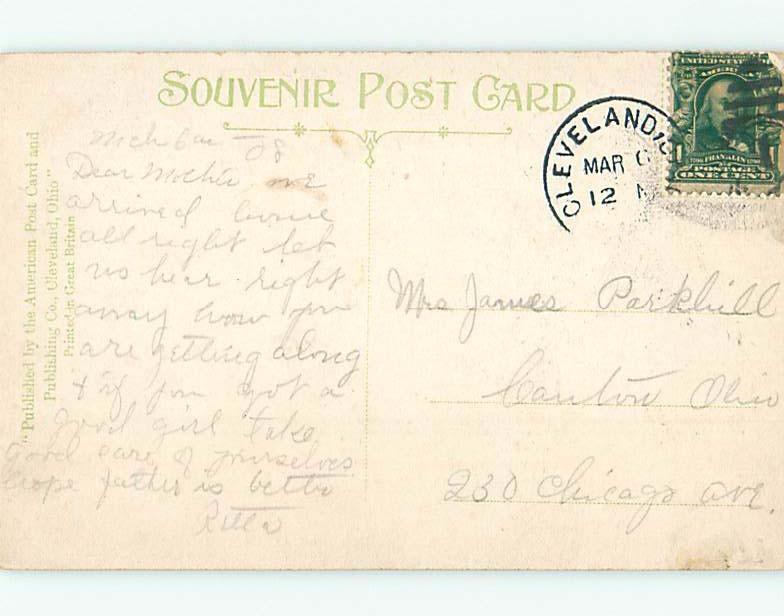 SOUVENIR POST CARD
"Published by the American Post Card and
Publishing Co., Cleveland, Ohio"
Printed in Great Britain
CLEVELAND,
MAR 6
12
UNITED STATES
FRANKLIN
POSTAGE
ONE CENT
Mch 6 08
Dear Mother we
arrived home
all right let
us hear right
away how you
are getting along
& if you got a
good girl take
good care of yourselves
hope father is better
Retta
Mrs James Parkhill
Canton Ohio
230 Chicago ave.